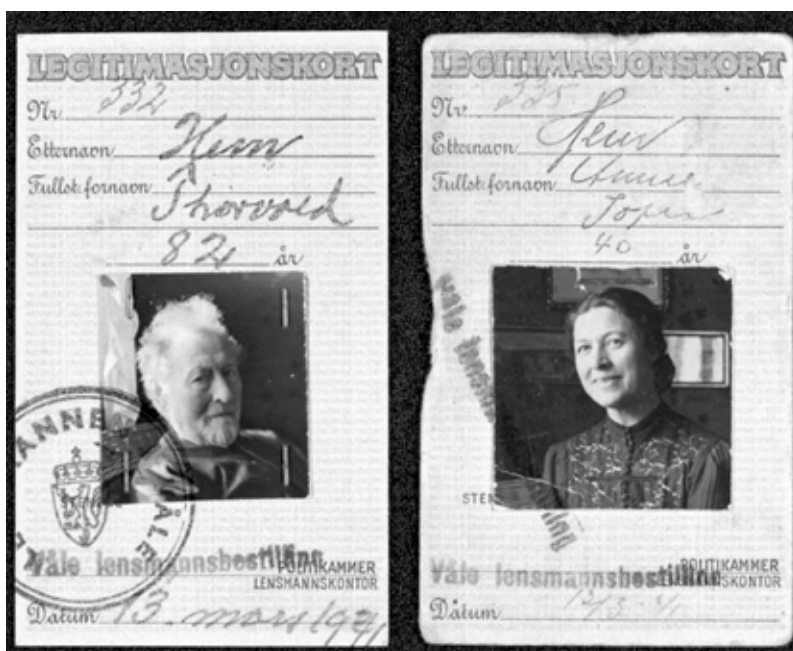 LEGITIMASJONSKORT
Nr. 332
Etternavn
Fullst. fornavn Thorvald
82 år
LENSMANNE VÅLE
Våle lensmannsbestilling
POLITIKAMMER
LENSMANNSKONTOR
Datum 13. mars 1941
LEGITIMASJONSKORT
Nr. 335
Etternavn
Fullst. fornavn
40 år
Våle lensmannsbestilling
STEM
Våle lensmannsbestilling
POLITIKAMMER
LENSMANNSKONTOR
Datum